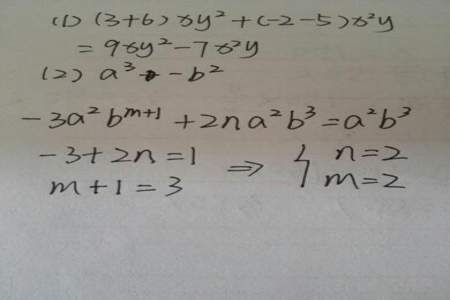 (1) (3+6)xy²+(-2-5)x²y
=9xy²-7x²y
(2) a³-b²
-3a²b^{m+1}+2na²b³=a²b³
-3+2n=1 ⇒ { n=2
m+1=3 m=2